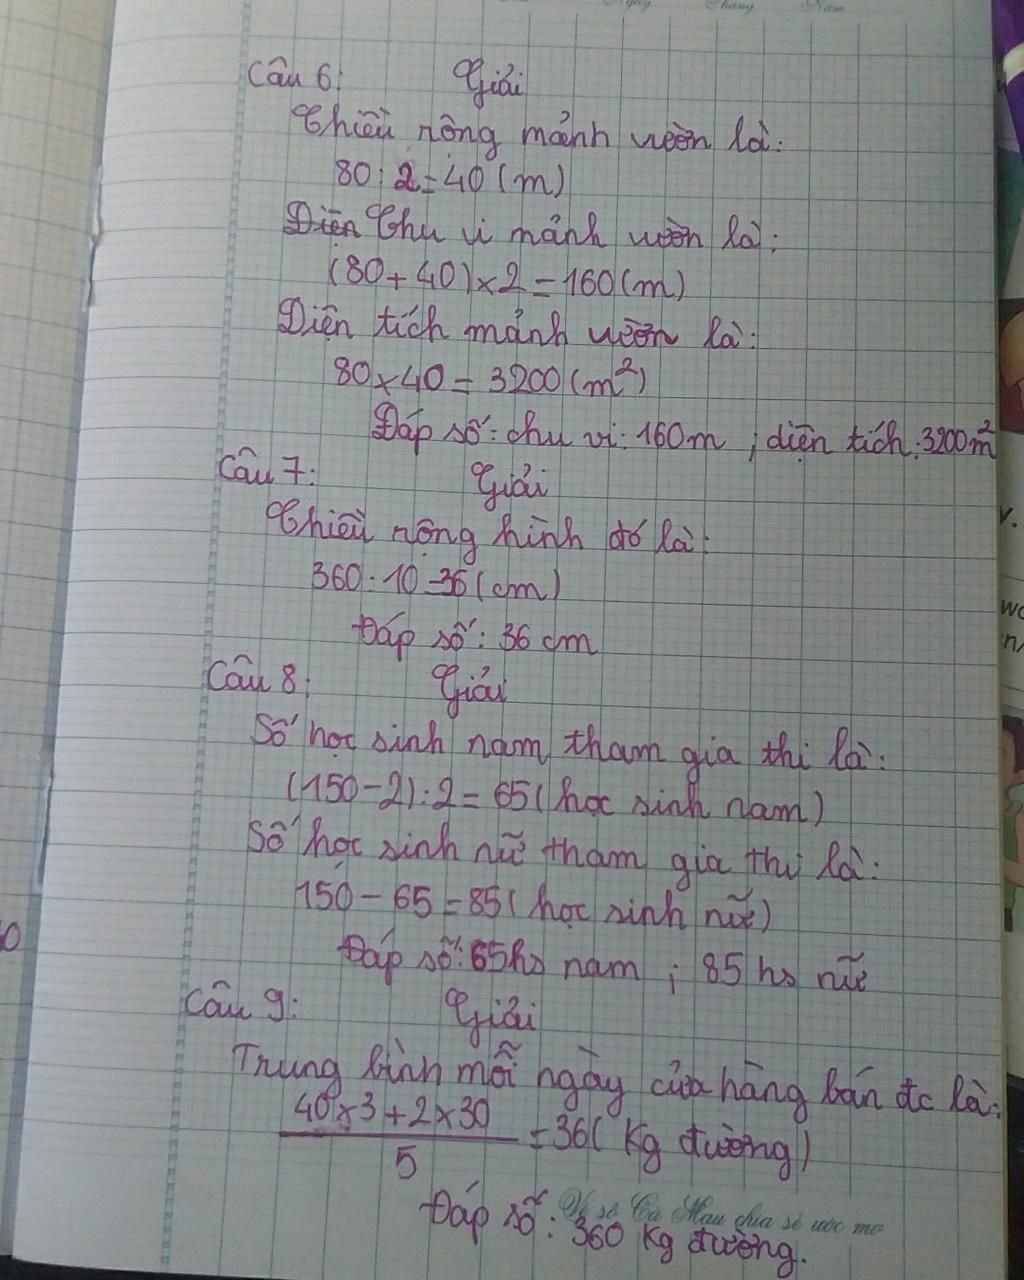 Ngày Tháng Năm
Câu 6: Giải
Chiều rông mảnh vườn là:
80 : 2 = 40 (m)
Diện Chu vi mảnh vườn là:
(80 + 40) x 2 = 160 (m)
Diện tích mảnh vườn là:
80 x 40 = 3200 (m²)
Đáp số: chu vi: 160m ; diện tích: 3200m²
Câu 7: Giải
Chiều rộng hình đó là:
360 : 10 = 36 (cm)
Đáp số: 36 cm
Câu 8: Giải
Số học sinh nam tham gia thi là:
(150 - 2) : 2 = 65 (học sinh nam)
Số học sinh nữ tham gia thi là:
150 - 65 = 85 (học sinh nữ)
Đáp số: 65 hs nam ; 85 hs nữ
Câu 9: Giải
Trung bình mỗi ngày cửa hàng bán đc là:
40 x 3 + 2 x 30
= 36 (Kg đường)
5
Cà Mau chia sẻ ước mơ
Đáp số: 360 Kg đường.